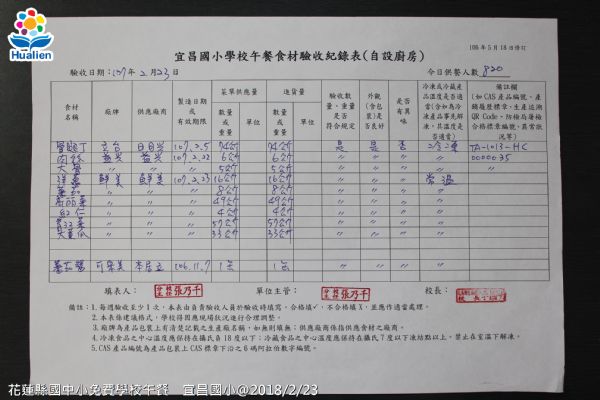 Hualien
106年5月18日修訂
宜昌國小學校午餐食材驗收紀錄表(自設廚房)
驗收日期:107年2月23日
今日供餐人數 820
食材名稱 廠牌 供應廠商 製造日期或有效期限 菜單供應量 數量或重量 單位 進貨量 數量或重量 單位 驗收數量、重量是否符合規定 外觀(含包裝)是否良好 是否有異味 備註欄
107.2.5 74公斤 74公斤 是 是 否 冷凍 TA-1013-HC
肉絲 益興 益興 107.2.22 6公斤 6公斤 〃 〃 〃 〃 0000035
〃 〃 〃 5公斤 5公斤 〃 〃 〃 〃 〃
洋蔥 鮮美 鮮美 107.2.23 16公斤 16公斤 〃 〃 〃 常溫
〃 〃 〃 8公斤 8公斤 〃 〃 〃 〃
〃 〃 〃 49公斤 49公斤 〃 〃 〃 〃
〃 〃 〃 4公斤 4公斤 〃 〃 〃 〃
〃 〃 〃 57公斤 57公斤 〃 〃 〃 〃
大黃瓜 〃 〃 〃 33公斤 33公斤 〃 〃 〃 〃
蕃茄醬 可果美 106.11.7 1 1 〃 〃 〃 〃
填表人: 張乃千 單位主管: 張乃千 校長:
備註:1.每週驗收至少1次,本表由負責驗收人員於驗收時填寫,合格填✓,不合格填X,並應作適當處理。
2.得本表修建議格式,學校得因應現場狀況逕行合理調整。
3.廠牌為產品包裝上有清楚記載之生產廠名稱,如無則填無;供應廠商係指供應食材之廠商。
4.冷凍食品之中心溫度應保持在攝氏負18度以下;冷藏食品之中心溫度應保持在攝氏7度以下凍結點以上。禁止在室溫下解凍。
5.CAS產品編號為產品包裝上CAS標章下沿之6碼阿拉伯數字編號。
花蓮縣國中小免費學校午餐 宜昌國小@2018/2/23